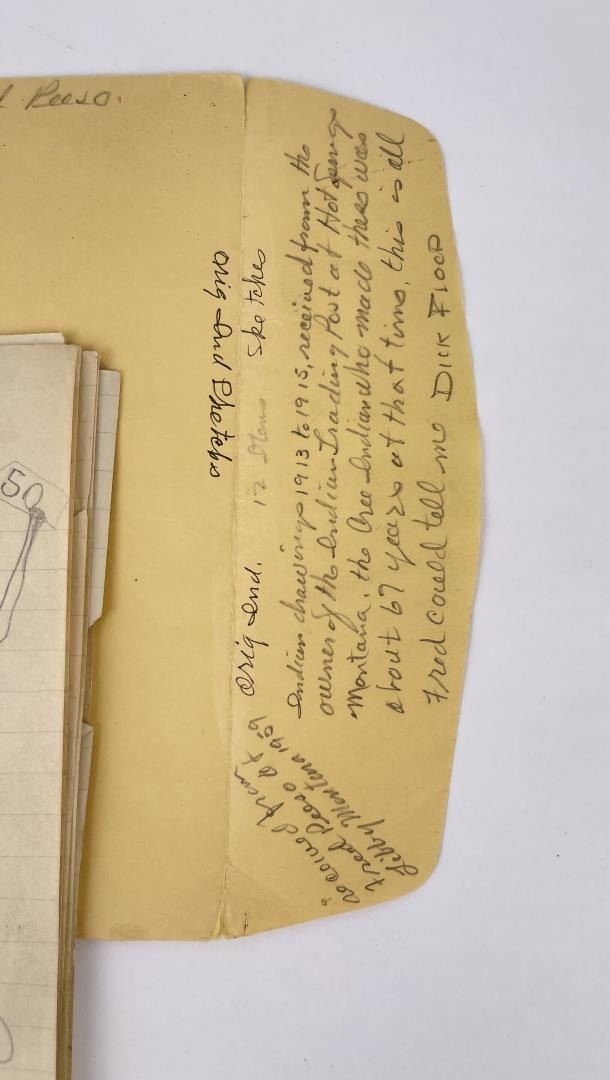 Peeso.
orig Ind Sketchs
orig Ind. 12 Items Sketches
Indian drawings 1913 to 1915, received from the
owner of the Indian Trading Post at Hot Springs
Montana. the Cree Indian who made thess was
about 67 years at that time, this is all
Fred could tell me DICK FLOOD
received from
Fred Peeso Oct
Libby Montana 1959
50